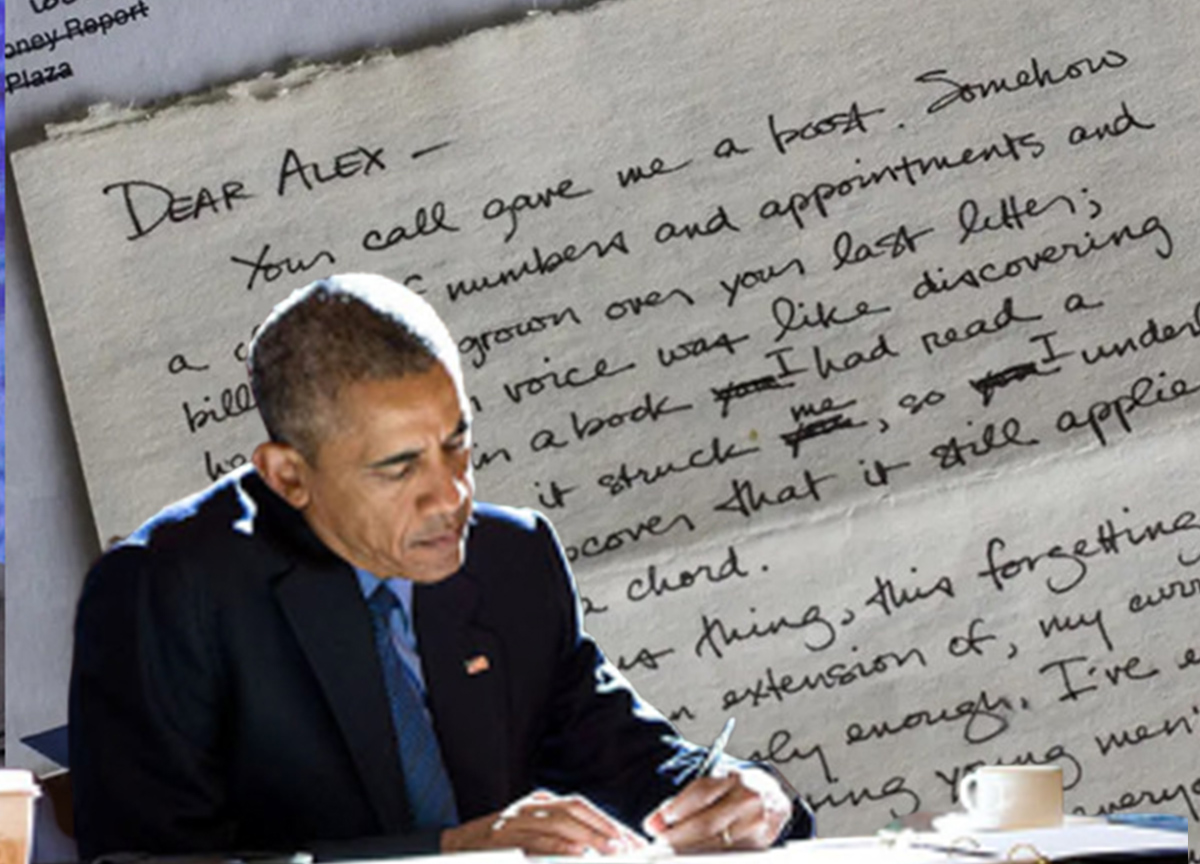 oney Report
Plaza
DEAR ALEX —
Your call gave me a boost. Somehow
a numbers and appointments and
bill grown over your last letter;
voice was like discovering
in a book I had read a
it struck me, so I under
cover that it still applie
a chord.
thing, this forgetting
extension of, my curr
ly enough. I've e
ing young men
every